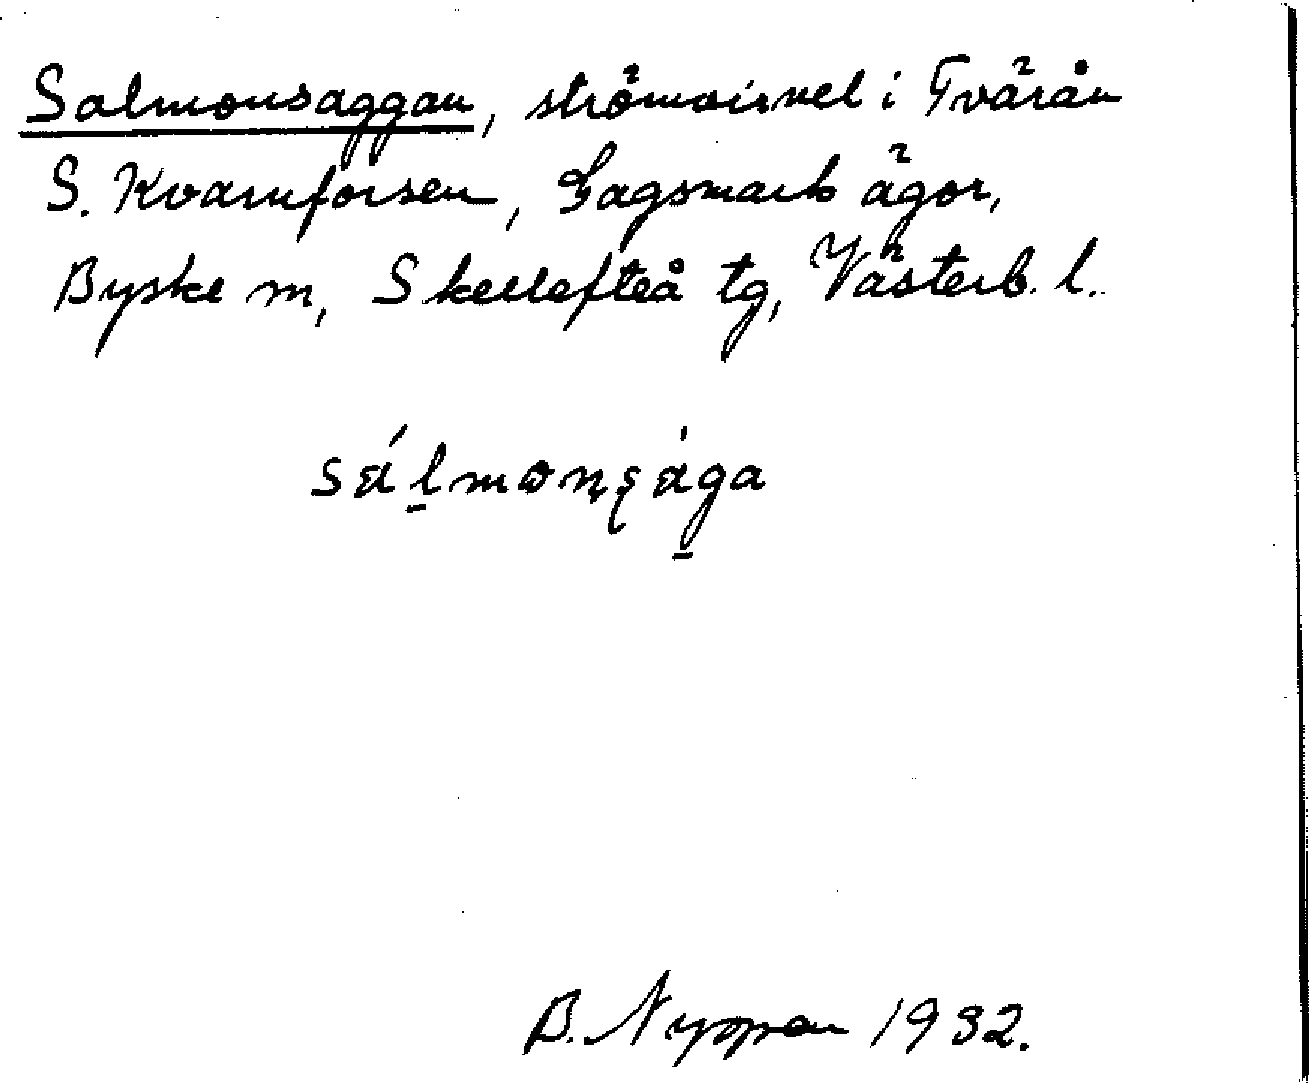 Salmonsaggan, strömvirvel i Tvärån
S. Kvarnforsen, Gagsmark ägor,
Byske sn, Skellefteå tg, Västerb. l.
sálmonsága
B. Nyman 1932.